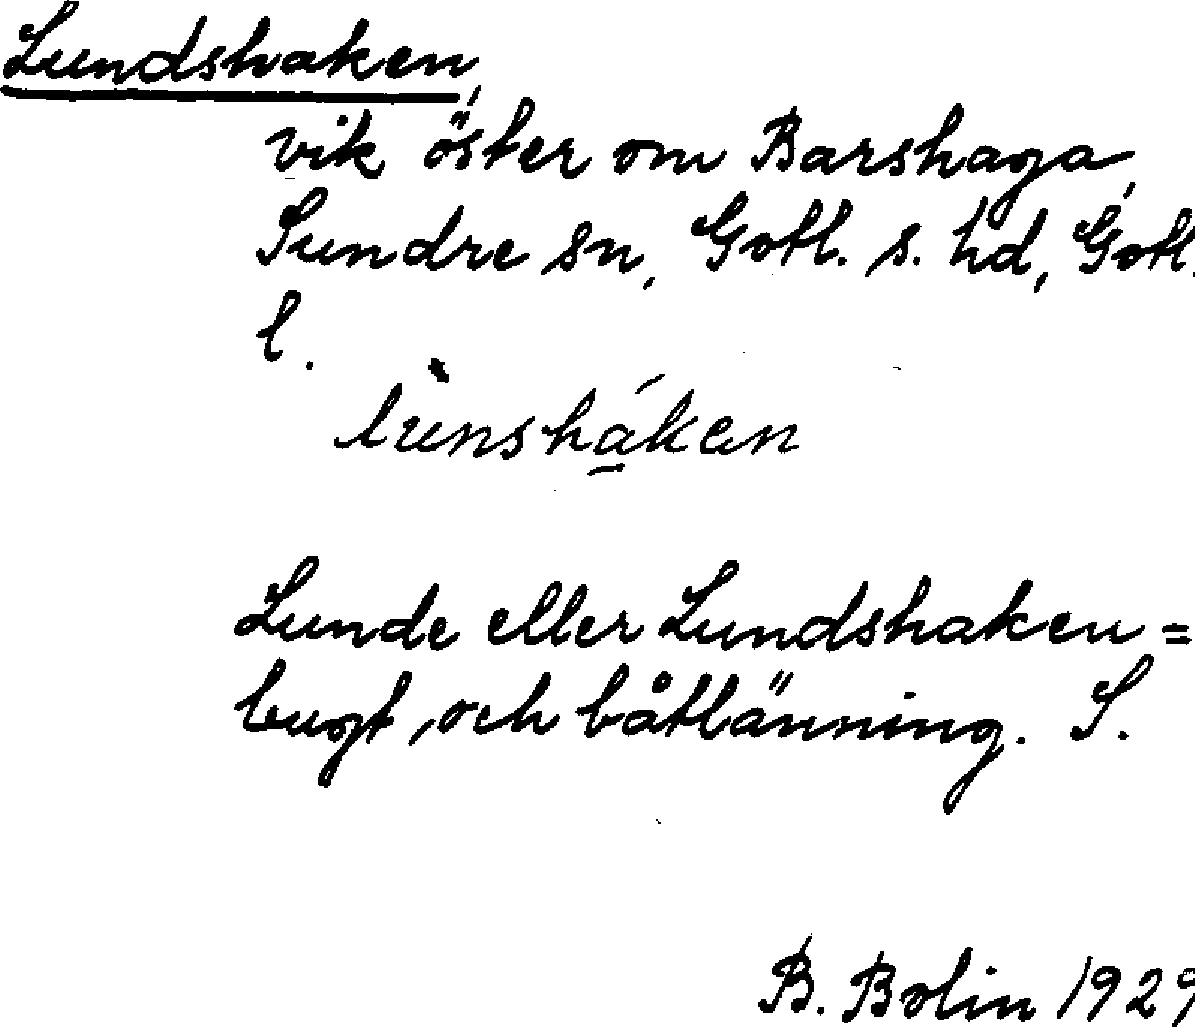 Lundshaken,
vik öster om Barshaga,
Sundre sn, Gotl. s. hd, Gotl.
l.
lùnshá̱ken
Lunde eller Lundshaken =
bugt, och båtlänning. S.
B. Bolin 1929